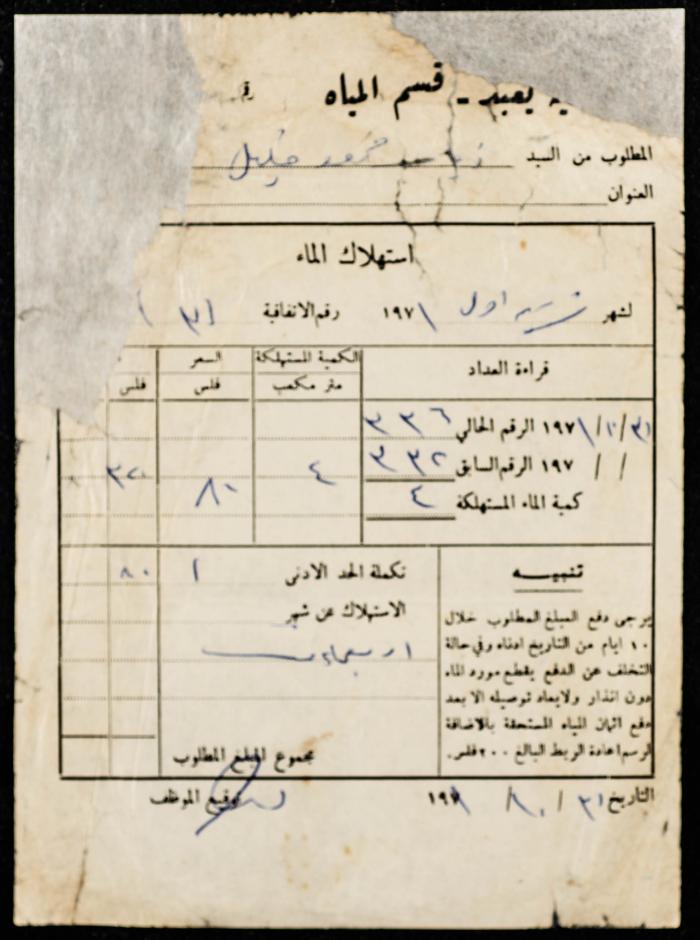 يعبد - قسم المياه
المطلوب من السيد محمود
العنوان
استهلاك الماء
لشهر تشرين اول ١٩٧١ رقم الاتفاقية
قراءة العداد الكمية المستهلكة السعر
متر مكعب فلس فلس
٣١/١٠/١٩٧١ الرقم الحالي ٣٣٦
/ / ١٩٧ الرقم السابق ٣٣٢ ٤ ٨٠ ٣٢٠
كمية الماء المستهلكة ٤
تنبيه
يرجى دفع المبلغ المطلوب خلال
١٠ ايام من التاريخ ادناه وفي حالة
التخلف عن الدفع يقطع مورد الماء
دون انذار ولا يعاد توصيله الا بعد
دفع اثمان المياه المستحقة بالاضافة
لرسم اعادة الربط البالغ ٢٠٠ فلس.
تكملة الحد الادنى ١ ٨٠
الاستهلاك عن شهر
اربعماية
مجموع المبلغ المطلوب
التاريخ ٣١/١٠/١٩٧١ توقيع الموظف